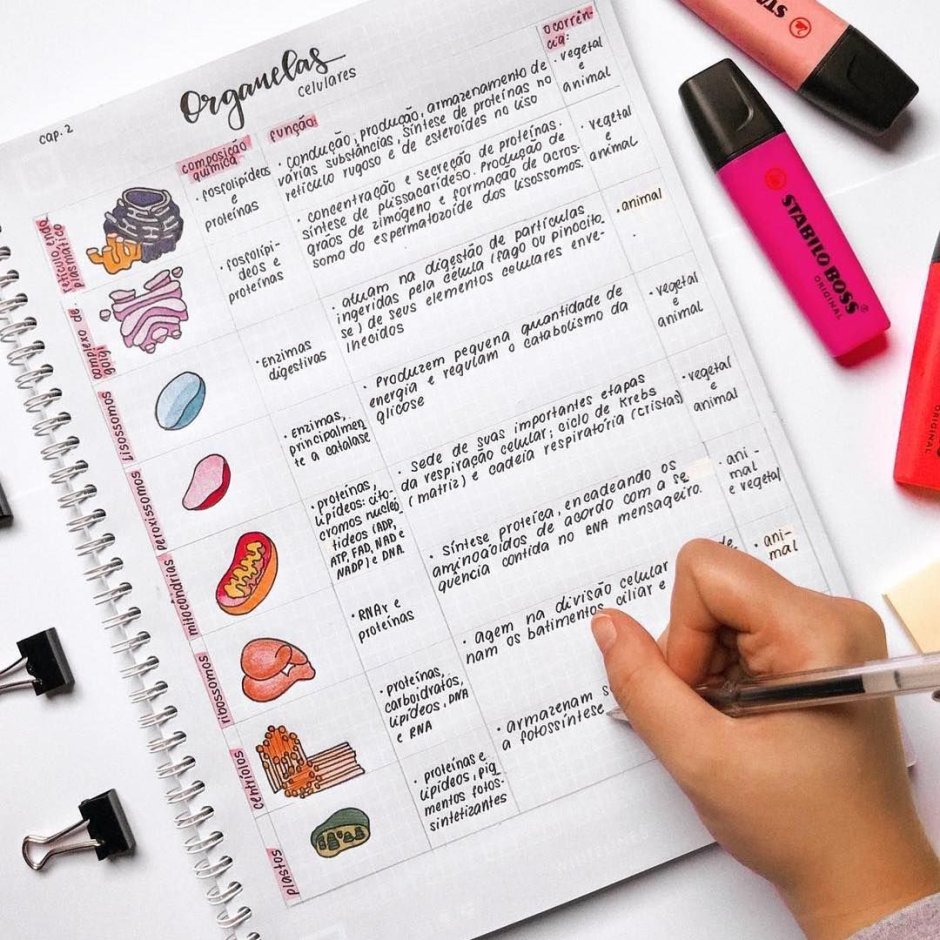 cap. 2
Organelas
celulares
composição
química
função
ocorrên-
cia:
retículo endo
plasmático
• fosfolipídeos
e
proteínas
• condução, produção, armazenamento de
várias substâncias, síntese de proteínas no
retículo rugoso e de esteroides no liso
• vegetal
e
animal
complexo de
golgi
• fosfolipí-
deos e
proteínas
• concentração e secreção de proteínas.
síntese de polissacarídeso. Produção de
grãos de zimógeno e formação de acros-
somo do espermatozoide dos lisossomos.
• vegetal
e
animal
Lisossomos
• Enzimas
digestivas
• atuam na digestão de partículas
ingeridas pela célula (fago ou pinocito
se) de seus elementos celulares enve-
lhecidos
• animal
peroxissomos
• Enzimas,
principalmen
te a catalase
• Produzem pequena quantidade de
energia e regulam o catabolismo da
glicose
• vegetal
e
animal
mitocôndrias
• proteínas,
lipídeos: cito-
cromos nucleo
tídeos (ADP,
ATP, FAD, NAD e
NADP) e DNA.
• sede de suas importantes etapas
da respiração celular; ciclo de Krebs
(matriz) e cadeia respiratória (cristas)
• vegetal
e
animal
ribossomos
• RNAr e
proteínas
• síntese proteíca, encadeando os
aminoácidos de acordo com a se
quência contida no RNA mensageiro.
• ani-
mal
e vegetal
centríolos
• proteínas,
carboidratos,
lipídeos, DNA
e RNA
• agem na divisão celular
nam os batimentos ciliar e
• ani-
mal
plastos
• proteínas e
lipídeos, pig
mentos fotos-
sintetizantes
• armazenam
a fotossíntese
STABILO BOSS
ORIGINAL
ORIGINAL